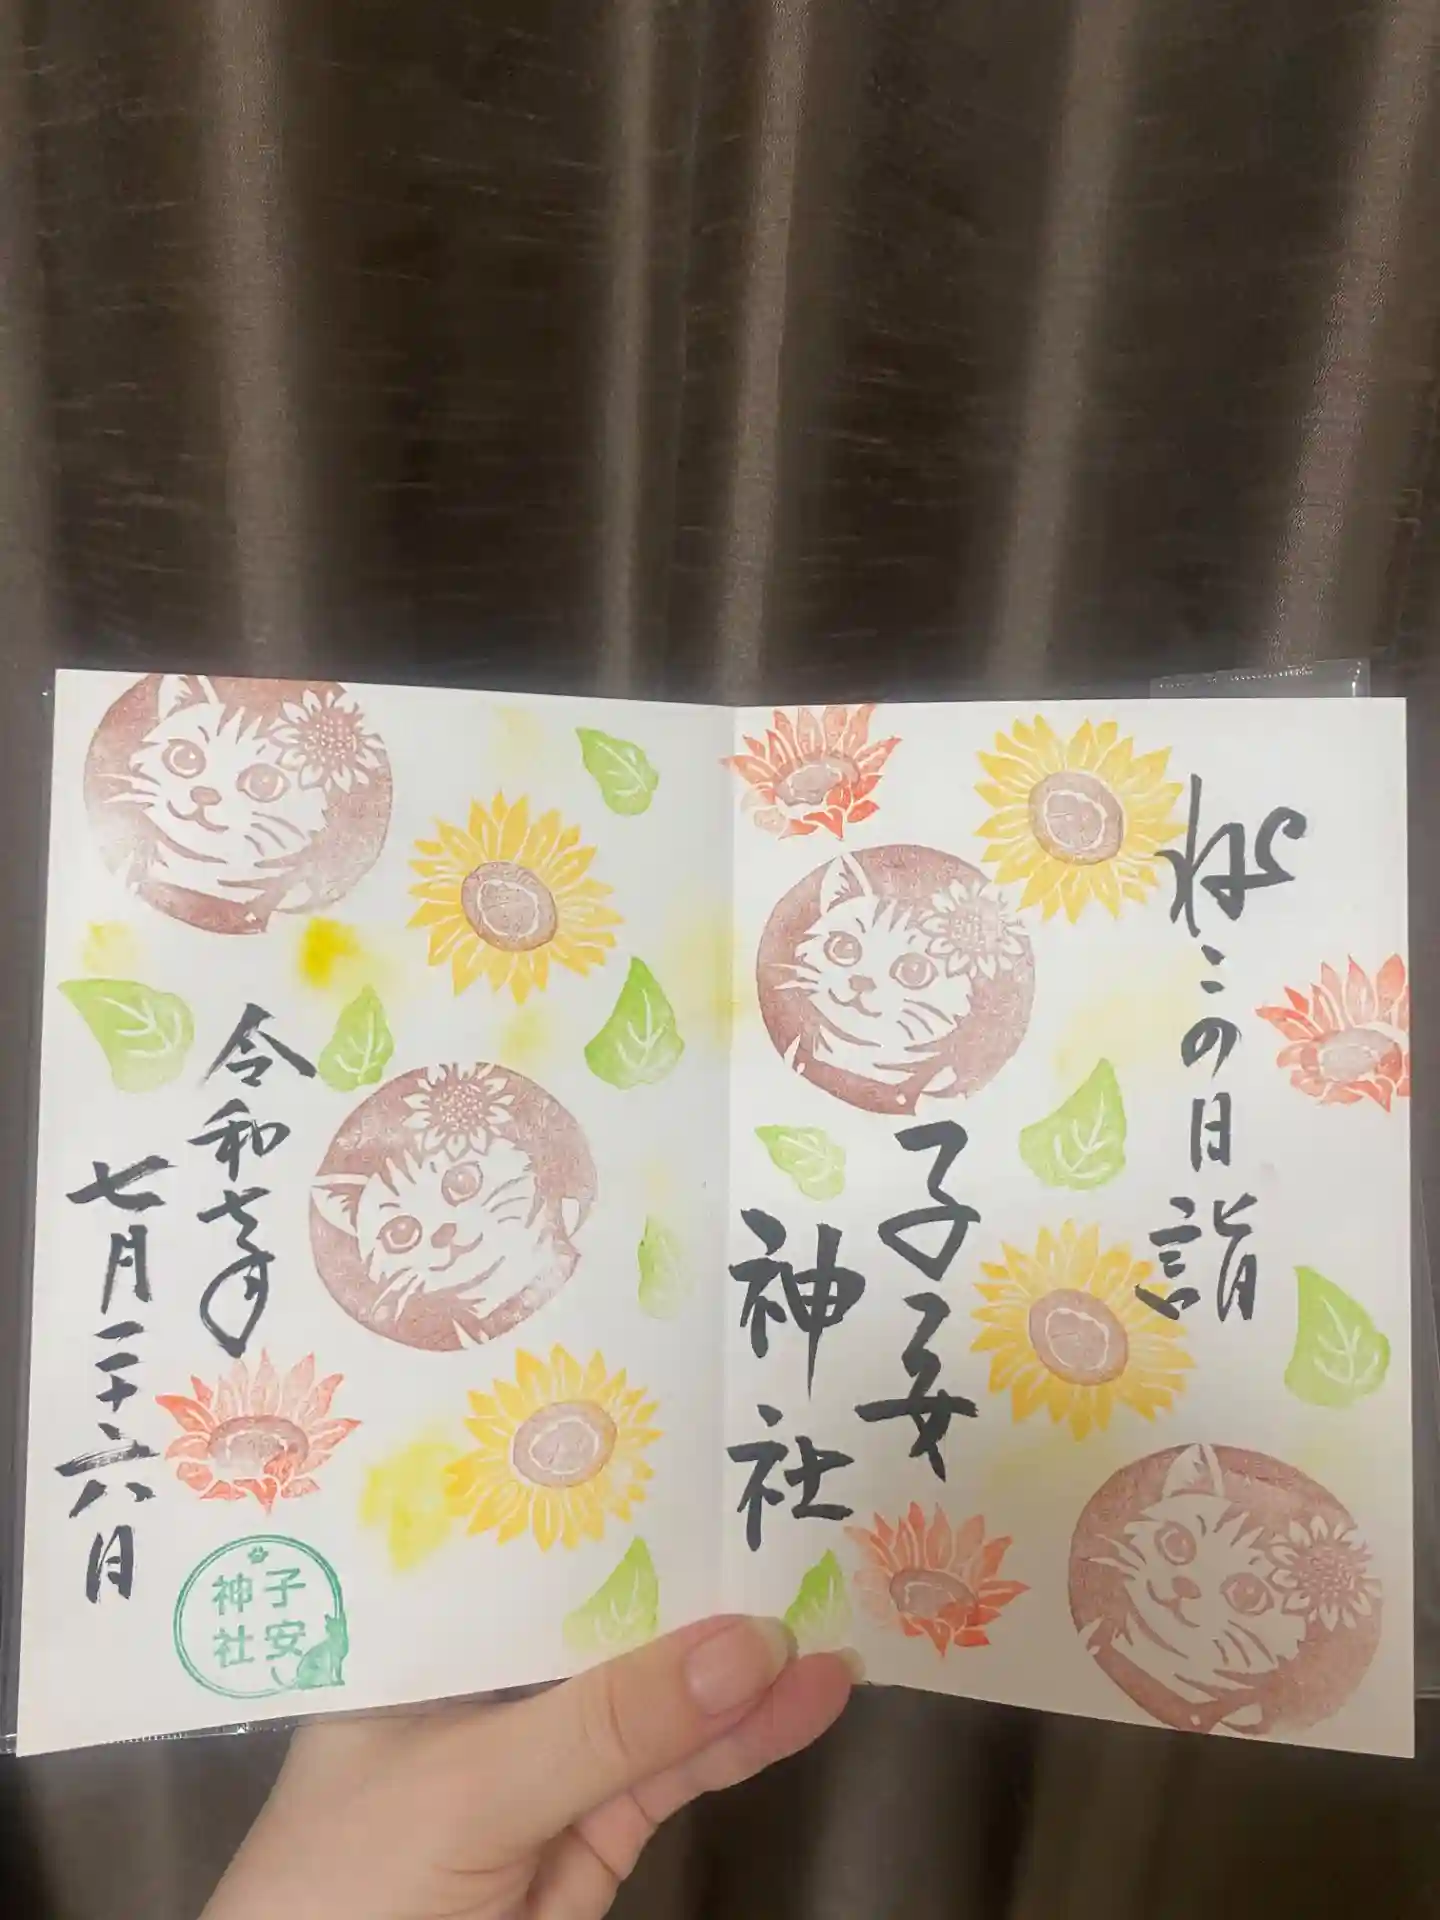 ねこの日詣
子安
神社
令和七年
七月二十六日
子安
神社